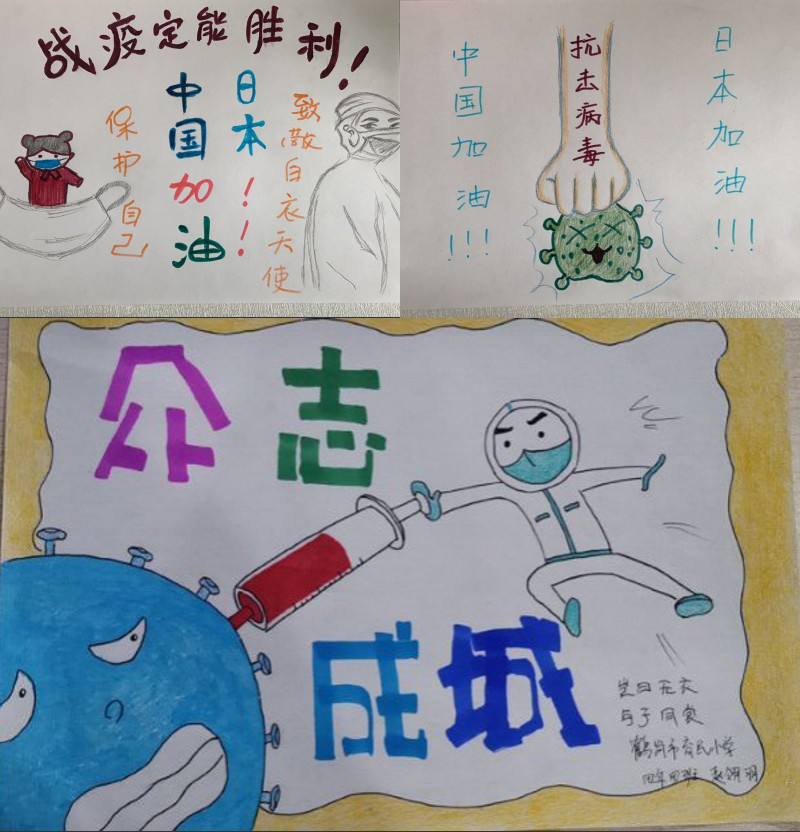 战疫定能胜利！
保护自己
中国加油
日本！！
致敬白衣天使
中国加油！！！
抗击病毒
日本加油！！！
众志
成城
岂曰无衣
与子同裳
鹤岗市育民小学
四年四班